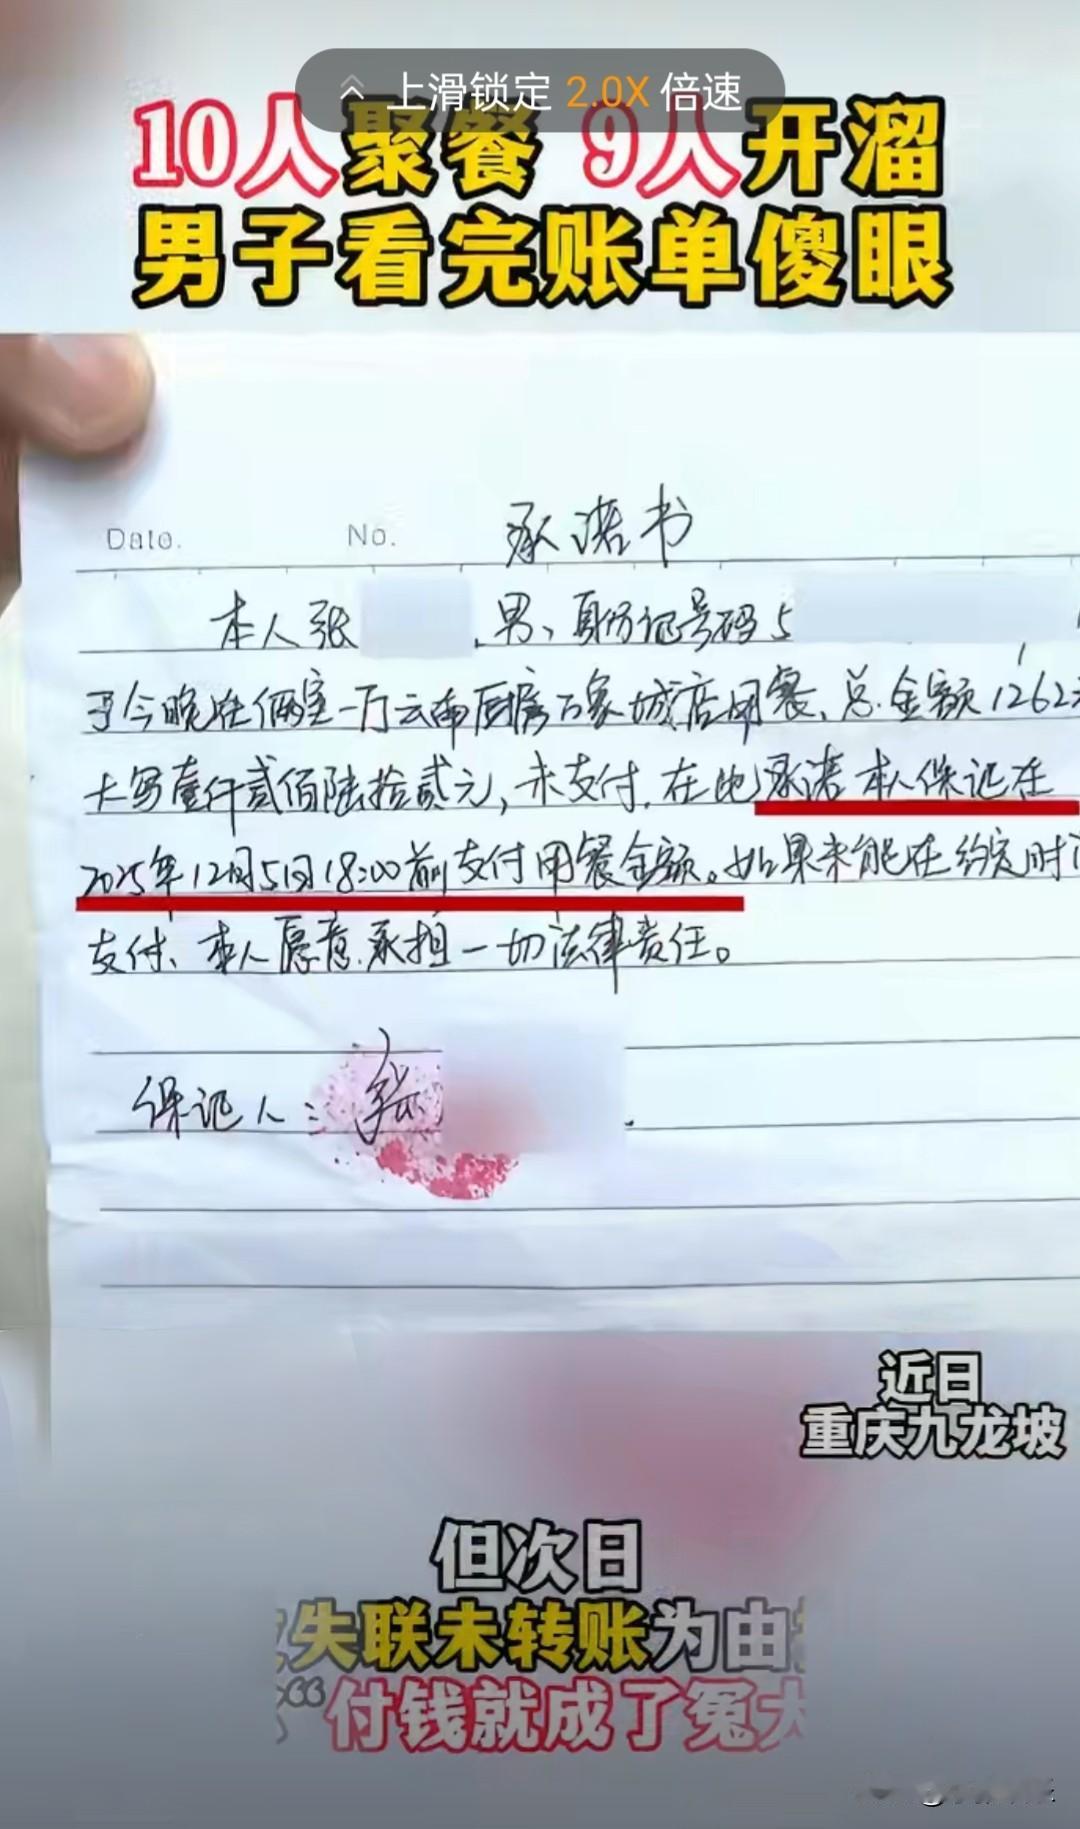 上滑锁定 2.0X 倍速
10人聚餐 9人开溜
男子看完账单傻眼
Date. No. 承诺书
本人张 ,男、身份证号码5
于今晚在俩室一厅云南厨房万象城店用餐、总金额1262元
大写壹仟贰佰陆拾贰元,未支付.在此承诺本人保证在
2025年12月5日18:00前支付用餐金额。如果未能在约定时间
支付、本人愿意承担一切法律责任。
保证人:张
近日
重庆九龙坡
但次日
失联未转账为由
“付钱就成了冤大